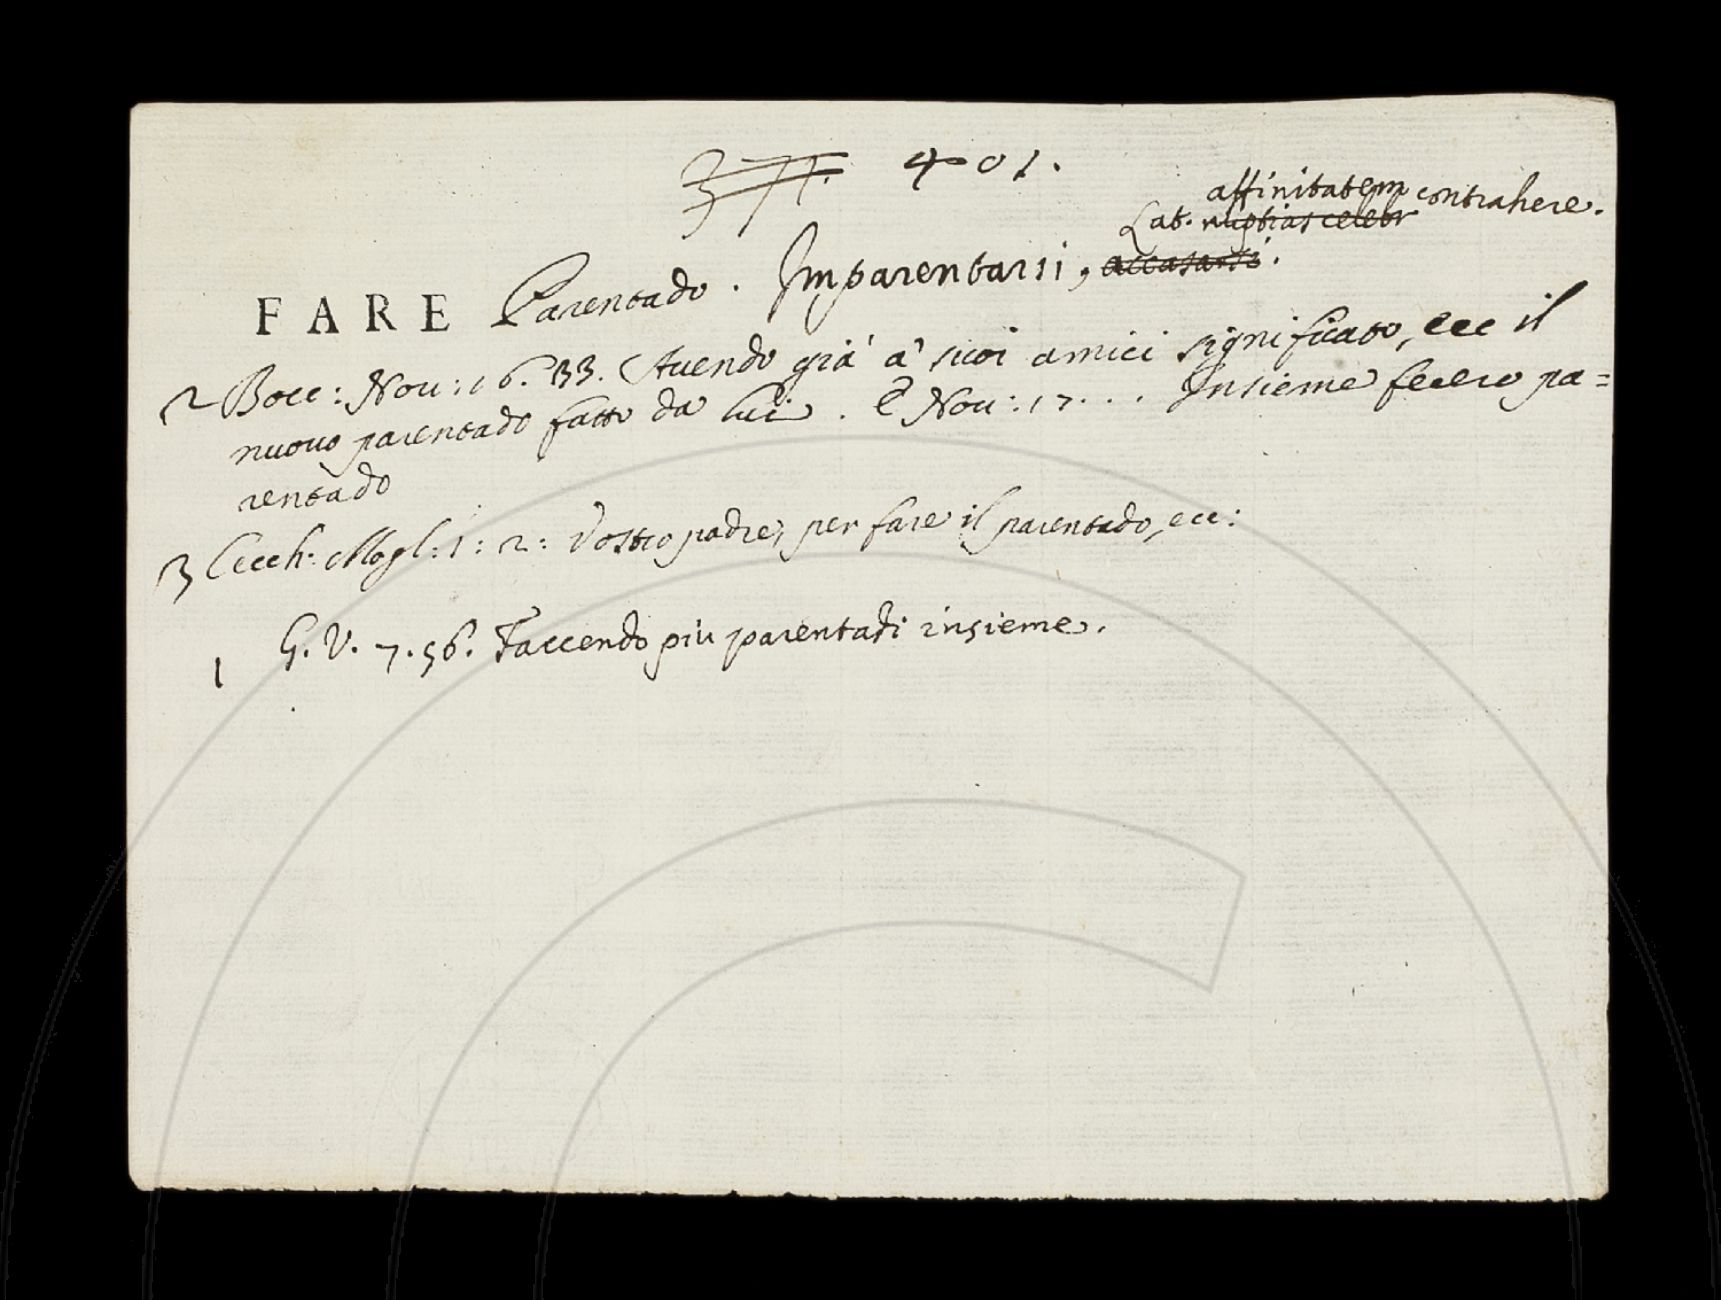 377. 401.
affinitatem contrahere.
Lat. nuptias celebr
FARE Parentado. Imparentarsi, accasarsi.
2 Bocc: Nov: 16. 33. Auendo già à suoi amici significato, ecc il
nuouo parentado fatto da lui. E Nou: 17... Insieme fecero pa=
rentado
3 Cecch: Mogl: 1: 2: Vostro padre, per fare il parentado, ecc:
1 G. V. 7. 56. Faccendo più parentadi insieme.